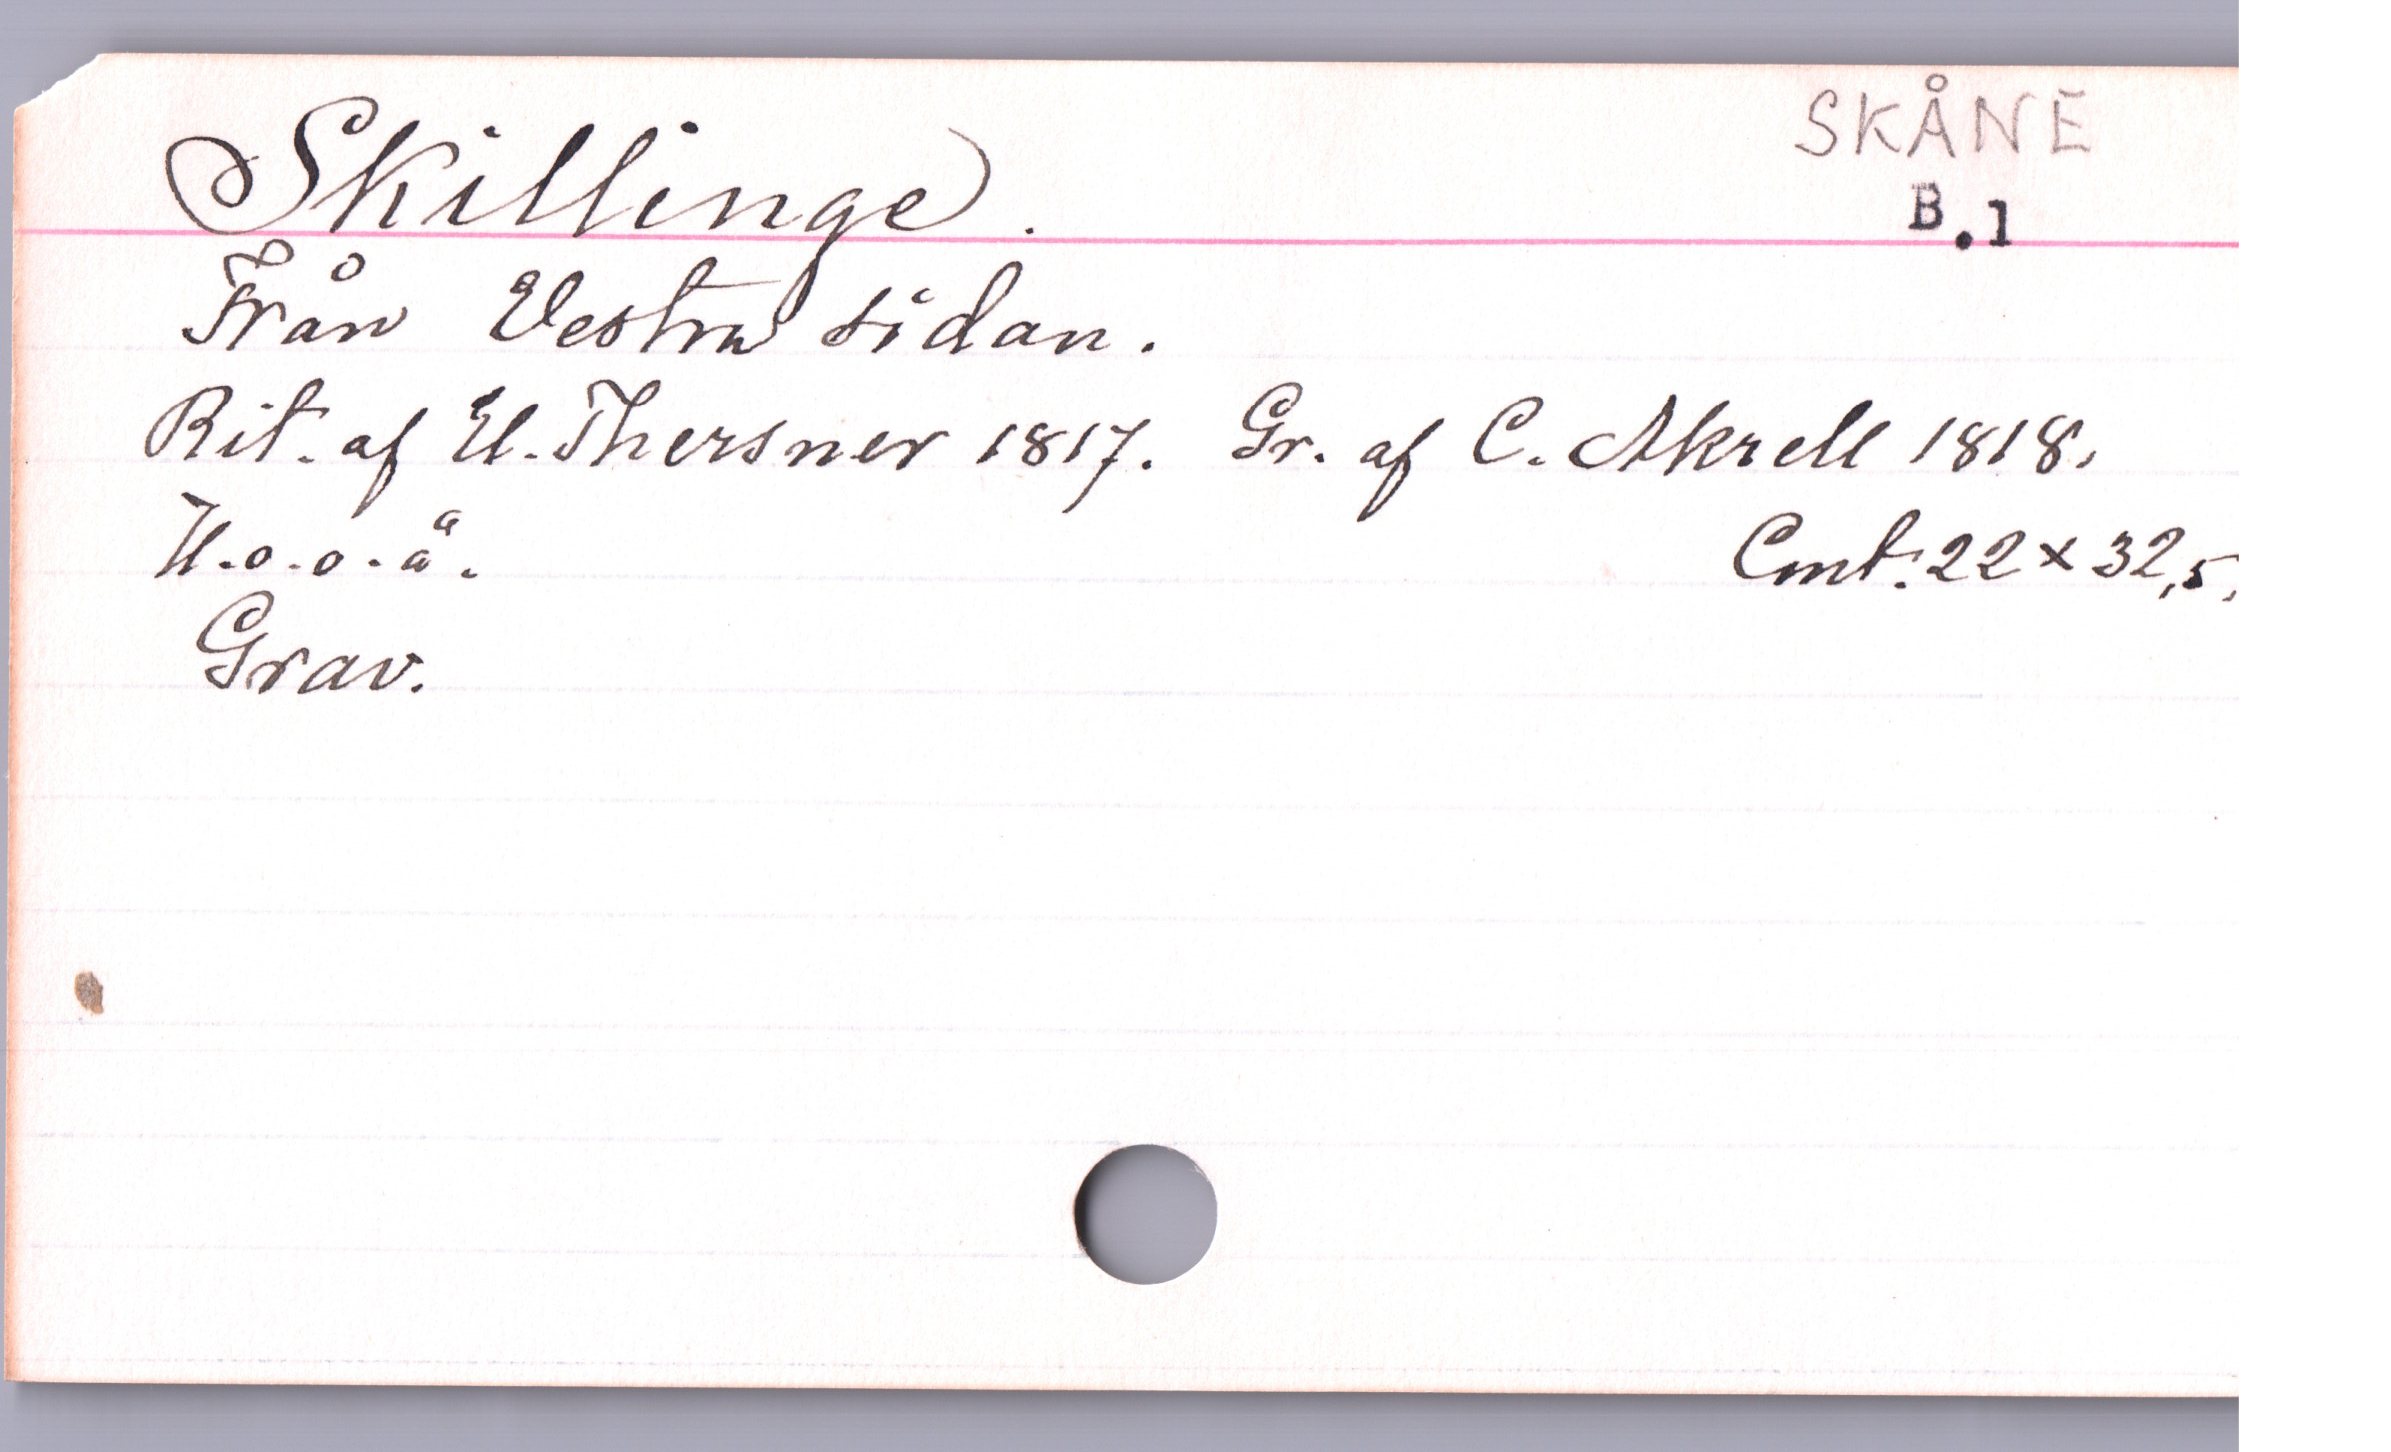 Skillinge.
SKÅNE
B.1
Från Vestra sidan.
Rit. af U. Thersner 1817. Gr. af C. Akrell 1818.
U.o.o.ä.
Cmt. 22 x 32,5.
Grav.